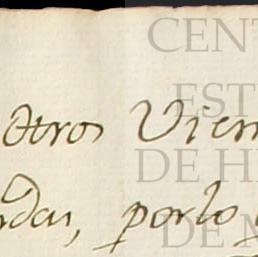 CENT
EST
Otros Vien
DE H
rdai, porlo q
DE M